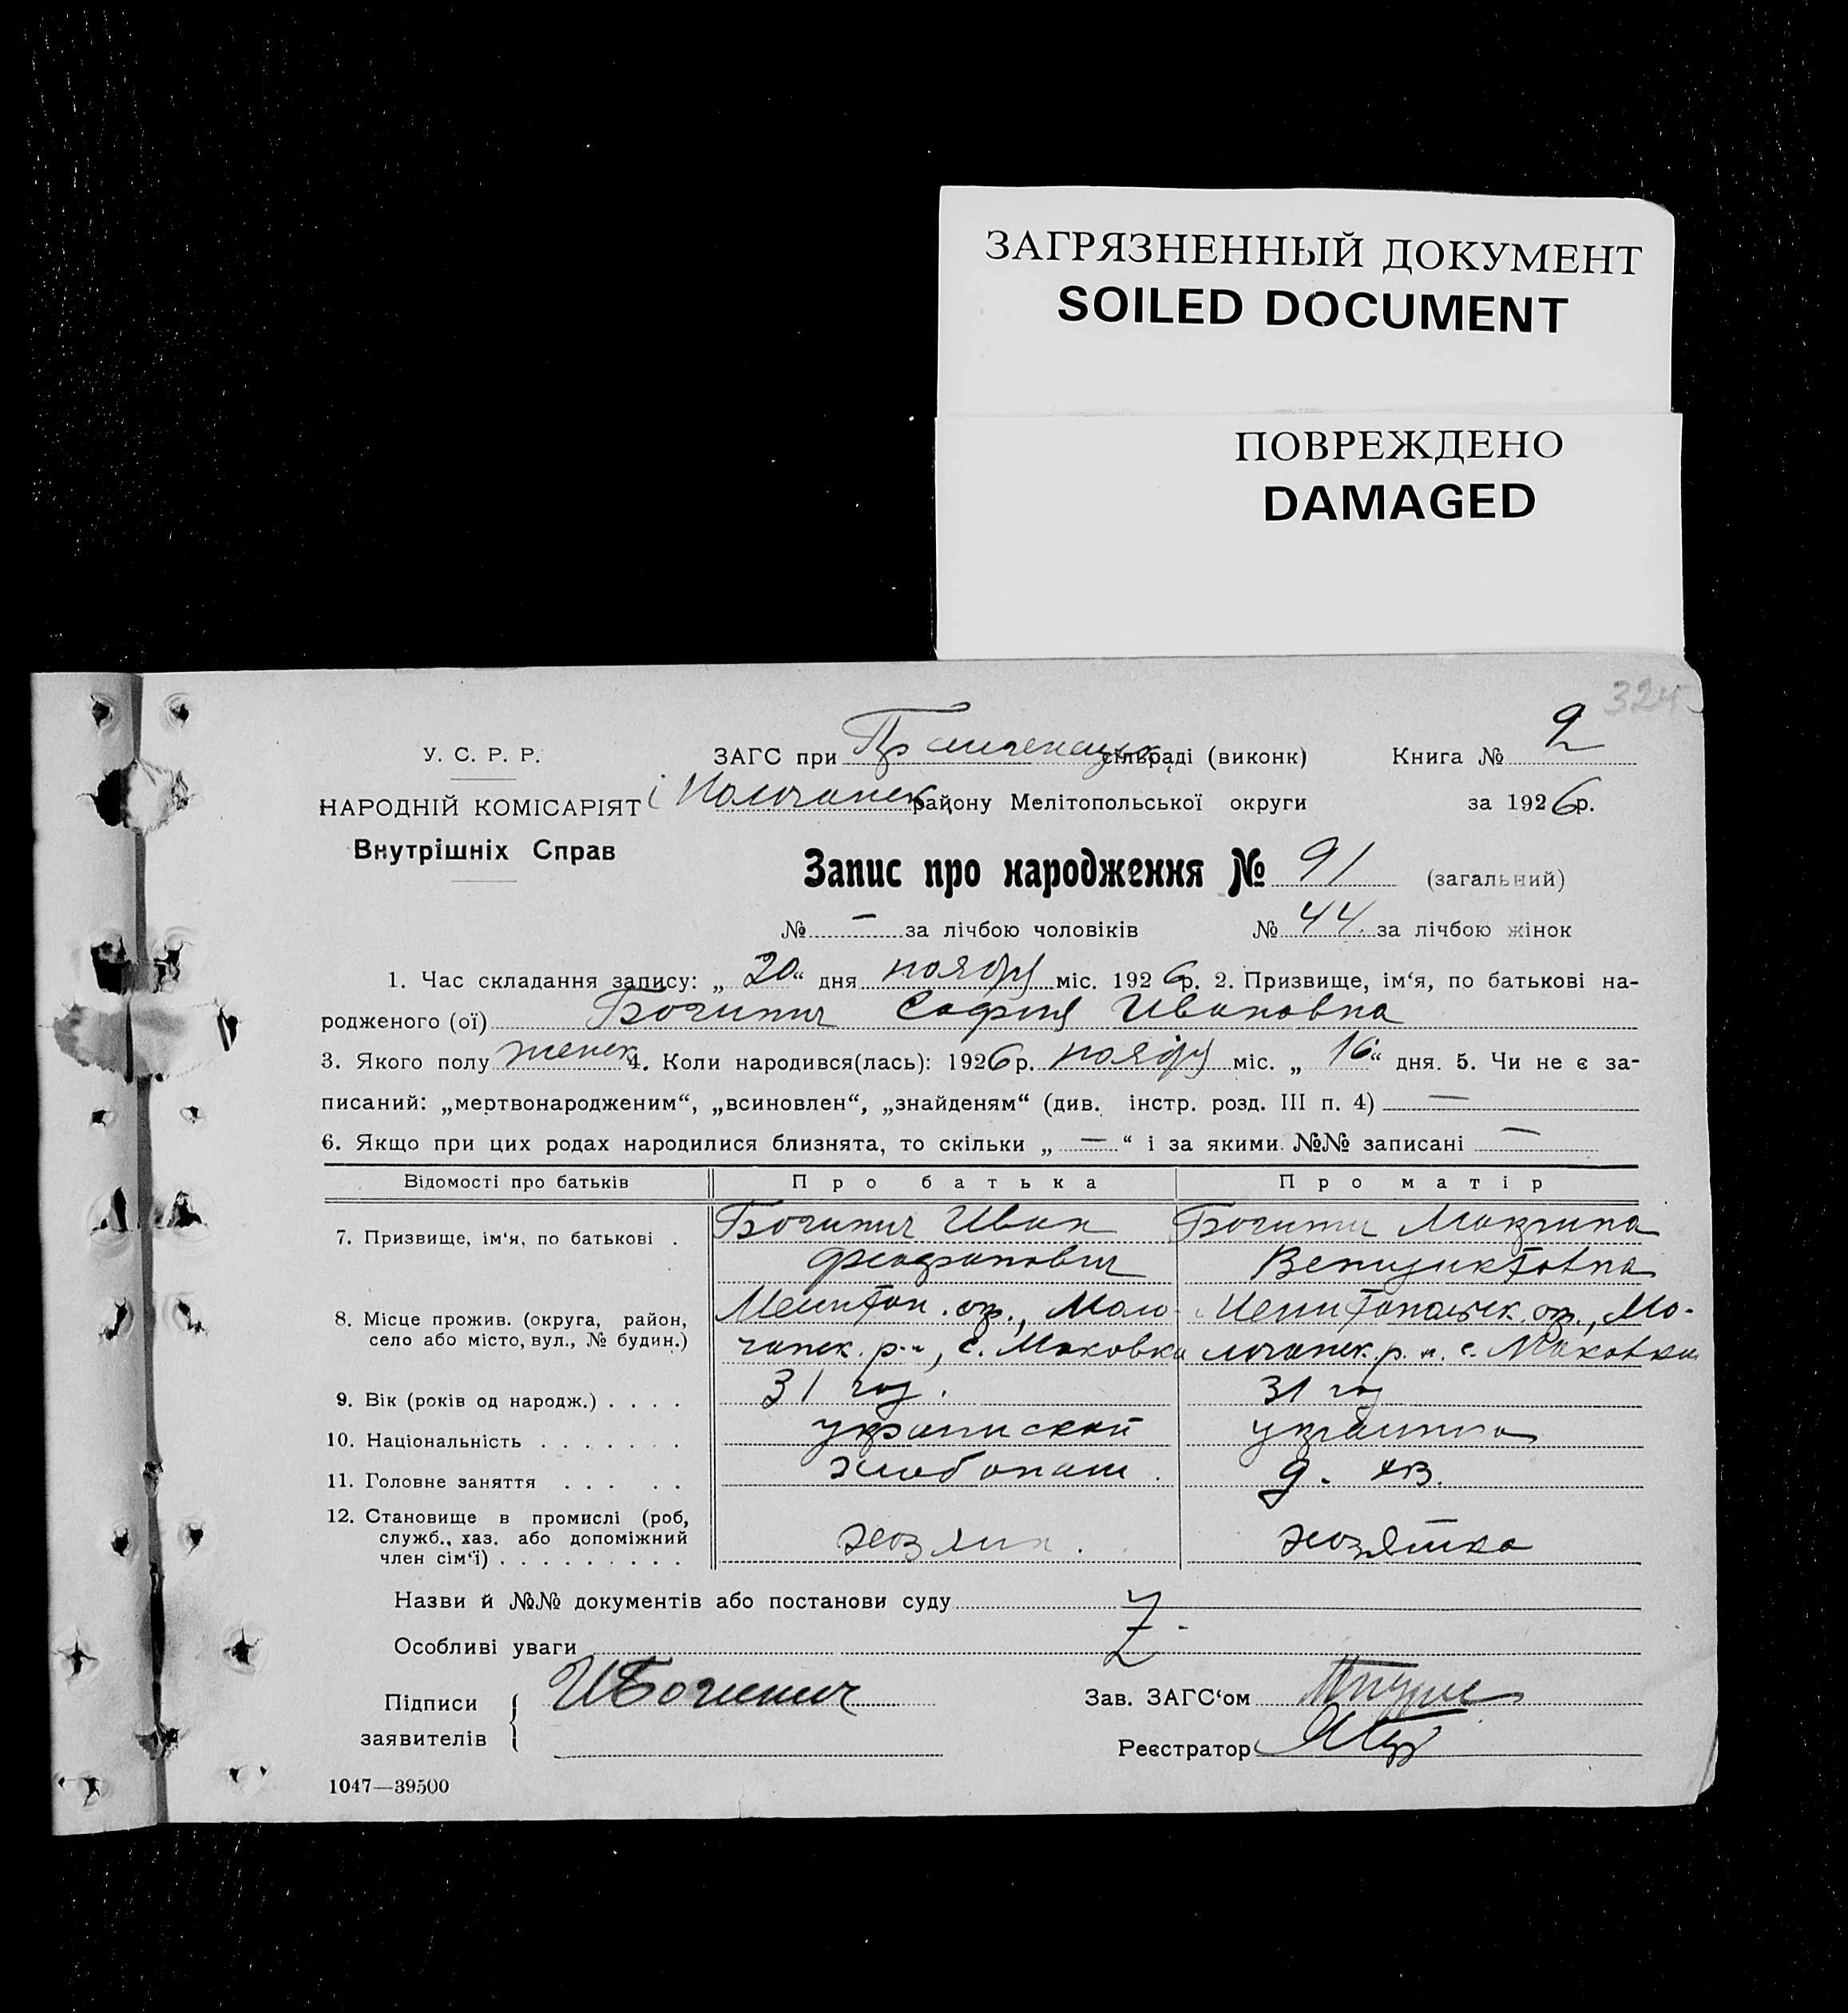 ЗАГРЯЗНЕННЫЙ ДОКУМЕНТ
SOILED DOCUMENT
ПОВРЕЖДЕНО
DAMAGED
324
У. С. Р. Р.
ЗАГС при сільраді (виконк) Книга № 2
НАРОДНІЙ КОМІСАРІЯТ району Мелітопольської округи за 1926 р.
Внутрішніх Справ
Запис про народження № 91 (загальний)
№ — за лічбою чоловіків № 44. за лічбою жінок
1. Час складання запису: „ 20 “ дня ноября міс. 1926 р. 2. Призвище, ім‘я, по батькові на-
родженого (ої) Богинич София Ивановна
3. Якого полу женск 4. Коли народився(лась): 1926 р. ноября міс. „ 16 “ дня. 5. Чи не є за-
писаний: „мертвонародженим“, „всиновлен“, „знайденям“ (див. інстр. розд. III п. 4) —
6. Якщо при цих родах народилися близнята, то скільки „ — “ і за якими №№ записані —
Відомості про батьків Про батька Про матір
7. Призвище, ім‘я, по батькові . Богинич Иван Богинич Макрина
Феофанович Венидиктовна
8. Місце прожив. (округа, район, Мелитоп. окр., Моло- Мелитопольск. окр., Мо-
село або місто, вул., № будин.) чанск. р-н, с. Маковка лочанск. р. н. с. Маковка
9. Вік (років од народж.) . . . . 31 год. 31 год
10. Національність . . . . . . . украинский украинка
11. Головне заняття . . . . . хлебопаш. д. хоз.
12. Становище в промислі (роб,
служб., хаз. або допоміжний хозяин. хозяйка
член сім‘ї) . . . . . . . . .
Назви й №№ документів або постанови суду
Особливі уваги
Підписи ИБогинич Зав. ЗАГС‘ом
заявителів
Реєстратор
1047—39500